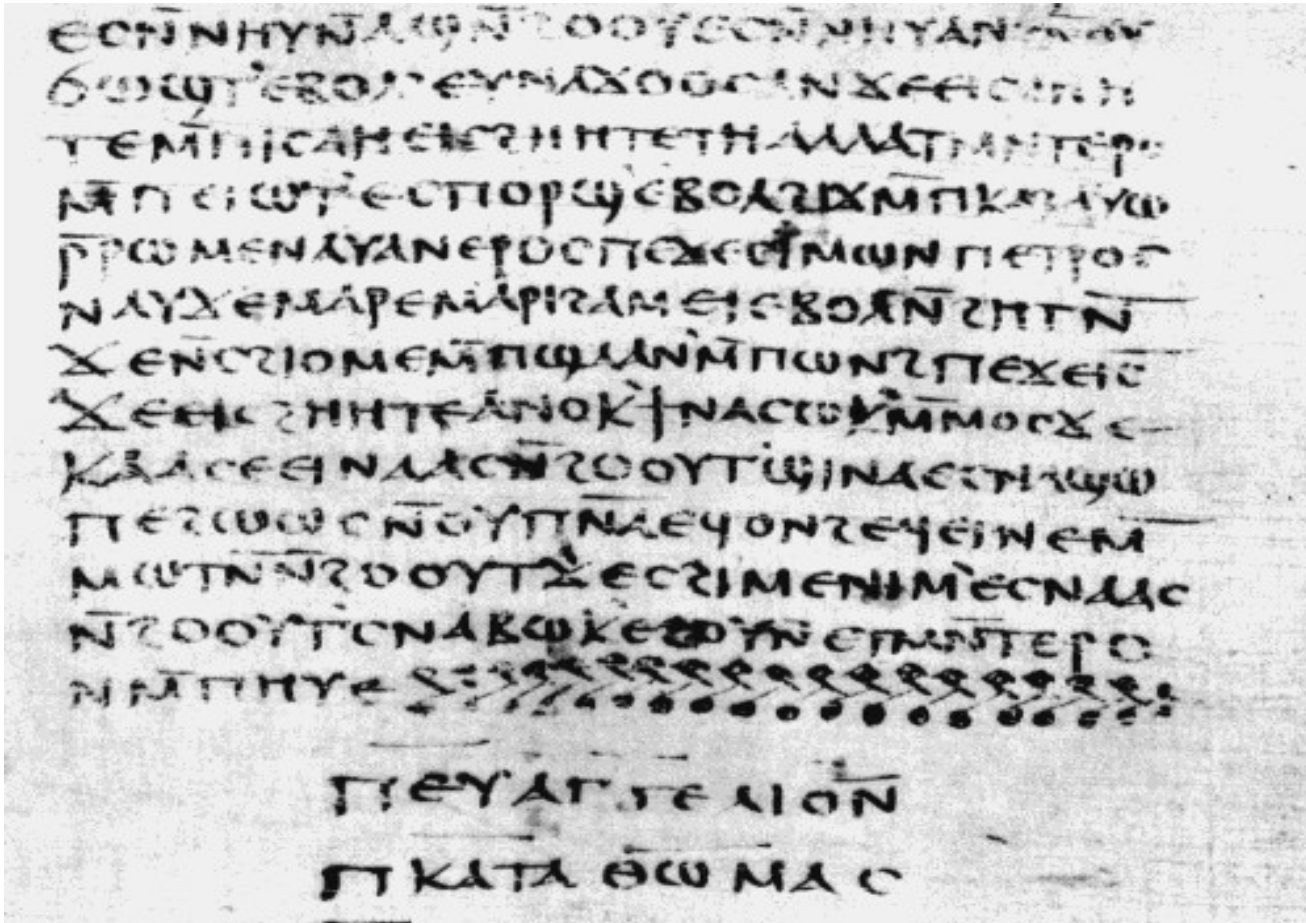 ⲉⲥⲛ̄ⲛⲏⲩⲛ̄ⲁϣⲛ̄ϩⲟⲟⲩⲉⲥⲛ̄ⲛⲏⲩⲁⲛϩⲛ̄ⲟⲩ
ϭⲱϣⲧ'ⲉⲃⲟⲗ'ⲉⲩⲛⲁϫⲟⲟⲥⲁⲛϫⲉⲉⲓⲥϩⲏⲏ
ⲧⲉⲙ̄ⲡⲓⲥⲁⲏⲉⲓⲥϩⲏⲏⲧⲉⲧⲏⲁⲗⲗⲁⲧⲙⲛ̄ⲧⲉⲣⲟ
ⲙ̄ⲡⲉⲓⲱⲧ'ⲉⲥⲡⲟⲣϣⲉⲃⲟⲗϩⲓϫⲙ̄ⲡⲕⲁϩⲁⲩⲱ
ⲣ̄ⲣⲱⲙⲉⲛⲁⲩⲁⲛⲉⲣⲟⲥⲡⲉϫⲉⲥⲓⲙⲱⲛⲡⲉⲧⲣⲟⲥ
ⲛⲁⲩϫⲉⲙⲁⲣⲉⲙⲁⲣⲓϩⲁⲙⲉⲓⲉⲃⲟⲗⲛ̄ϩⲏⲧⲛ̄
ϫⲉⲛ̄ⲥϩⲓⲟⲙⲉⲙ̄ⲡϣⲁⲁⲛ'ⲙ̄ⲡⲱⲛϩⲡⲉϫⲉⲓ̄ⲥ̄
ϫⲉⲉⲓⲥϩⲏⲏⲧⲉⲁⲛⲟⲕ'ϯⲛⲁⲥⲱⲕ'ⲙ̄ⲙⲟⲥϫⲉ
ⲕⲁⲁⲥⲉⲉⲓⲛⲁⲁⲥⲛ̄ϩⲟⲟⲩⲧ'ϣⲓⲛⲁⲉⲥⲛⲁϣⲱ
ⲡⲉϩⲱⲱⲥⲛ̄ⲟⲩⲡ̄ⲛ̄ⲁ̄ⲉϥⲟⲛϩⲉϥⲉⲓⲛⲉⲙ̄
ⲙⲱⲧⲛ̄ⲛ̄ϩⲟⲟⲩⲧ'ϫⲉⲥϩⲓⲙⲉⲛⲓⲙ'ⲉⲥⲛⲁⲁⲥ
ⲛ̄ϩⲟⲟⲩⲧ'ⲥⲛⲁⲃⲱⲕ'ⲉϩⲟⲩⲛⲉⲧⲙⲛ̄ⲧⲉⲣⲟ
ⲛⲙ̄ⲡⲏⲩⲉ
ⲡⲉⲩⲁⲅⲅⲉⲗⲓⲟⲛ
ⲡⲕⲁⲧⲁⲑⲱⲙⲁⲥ